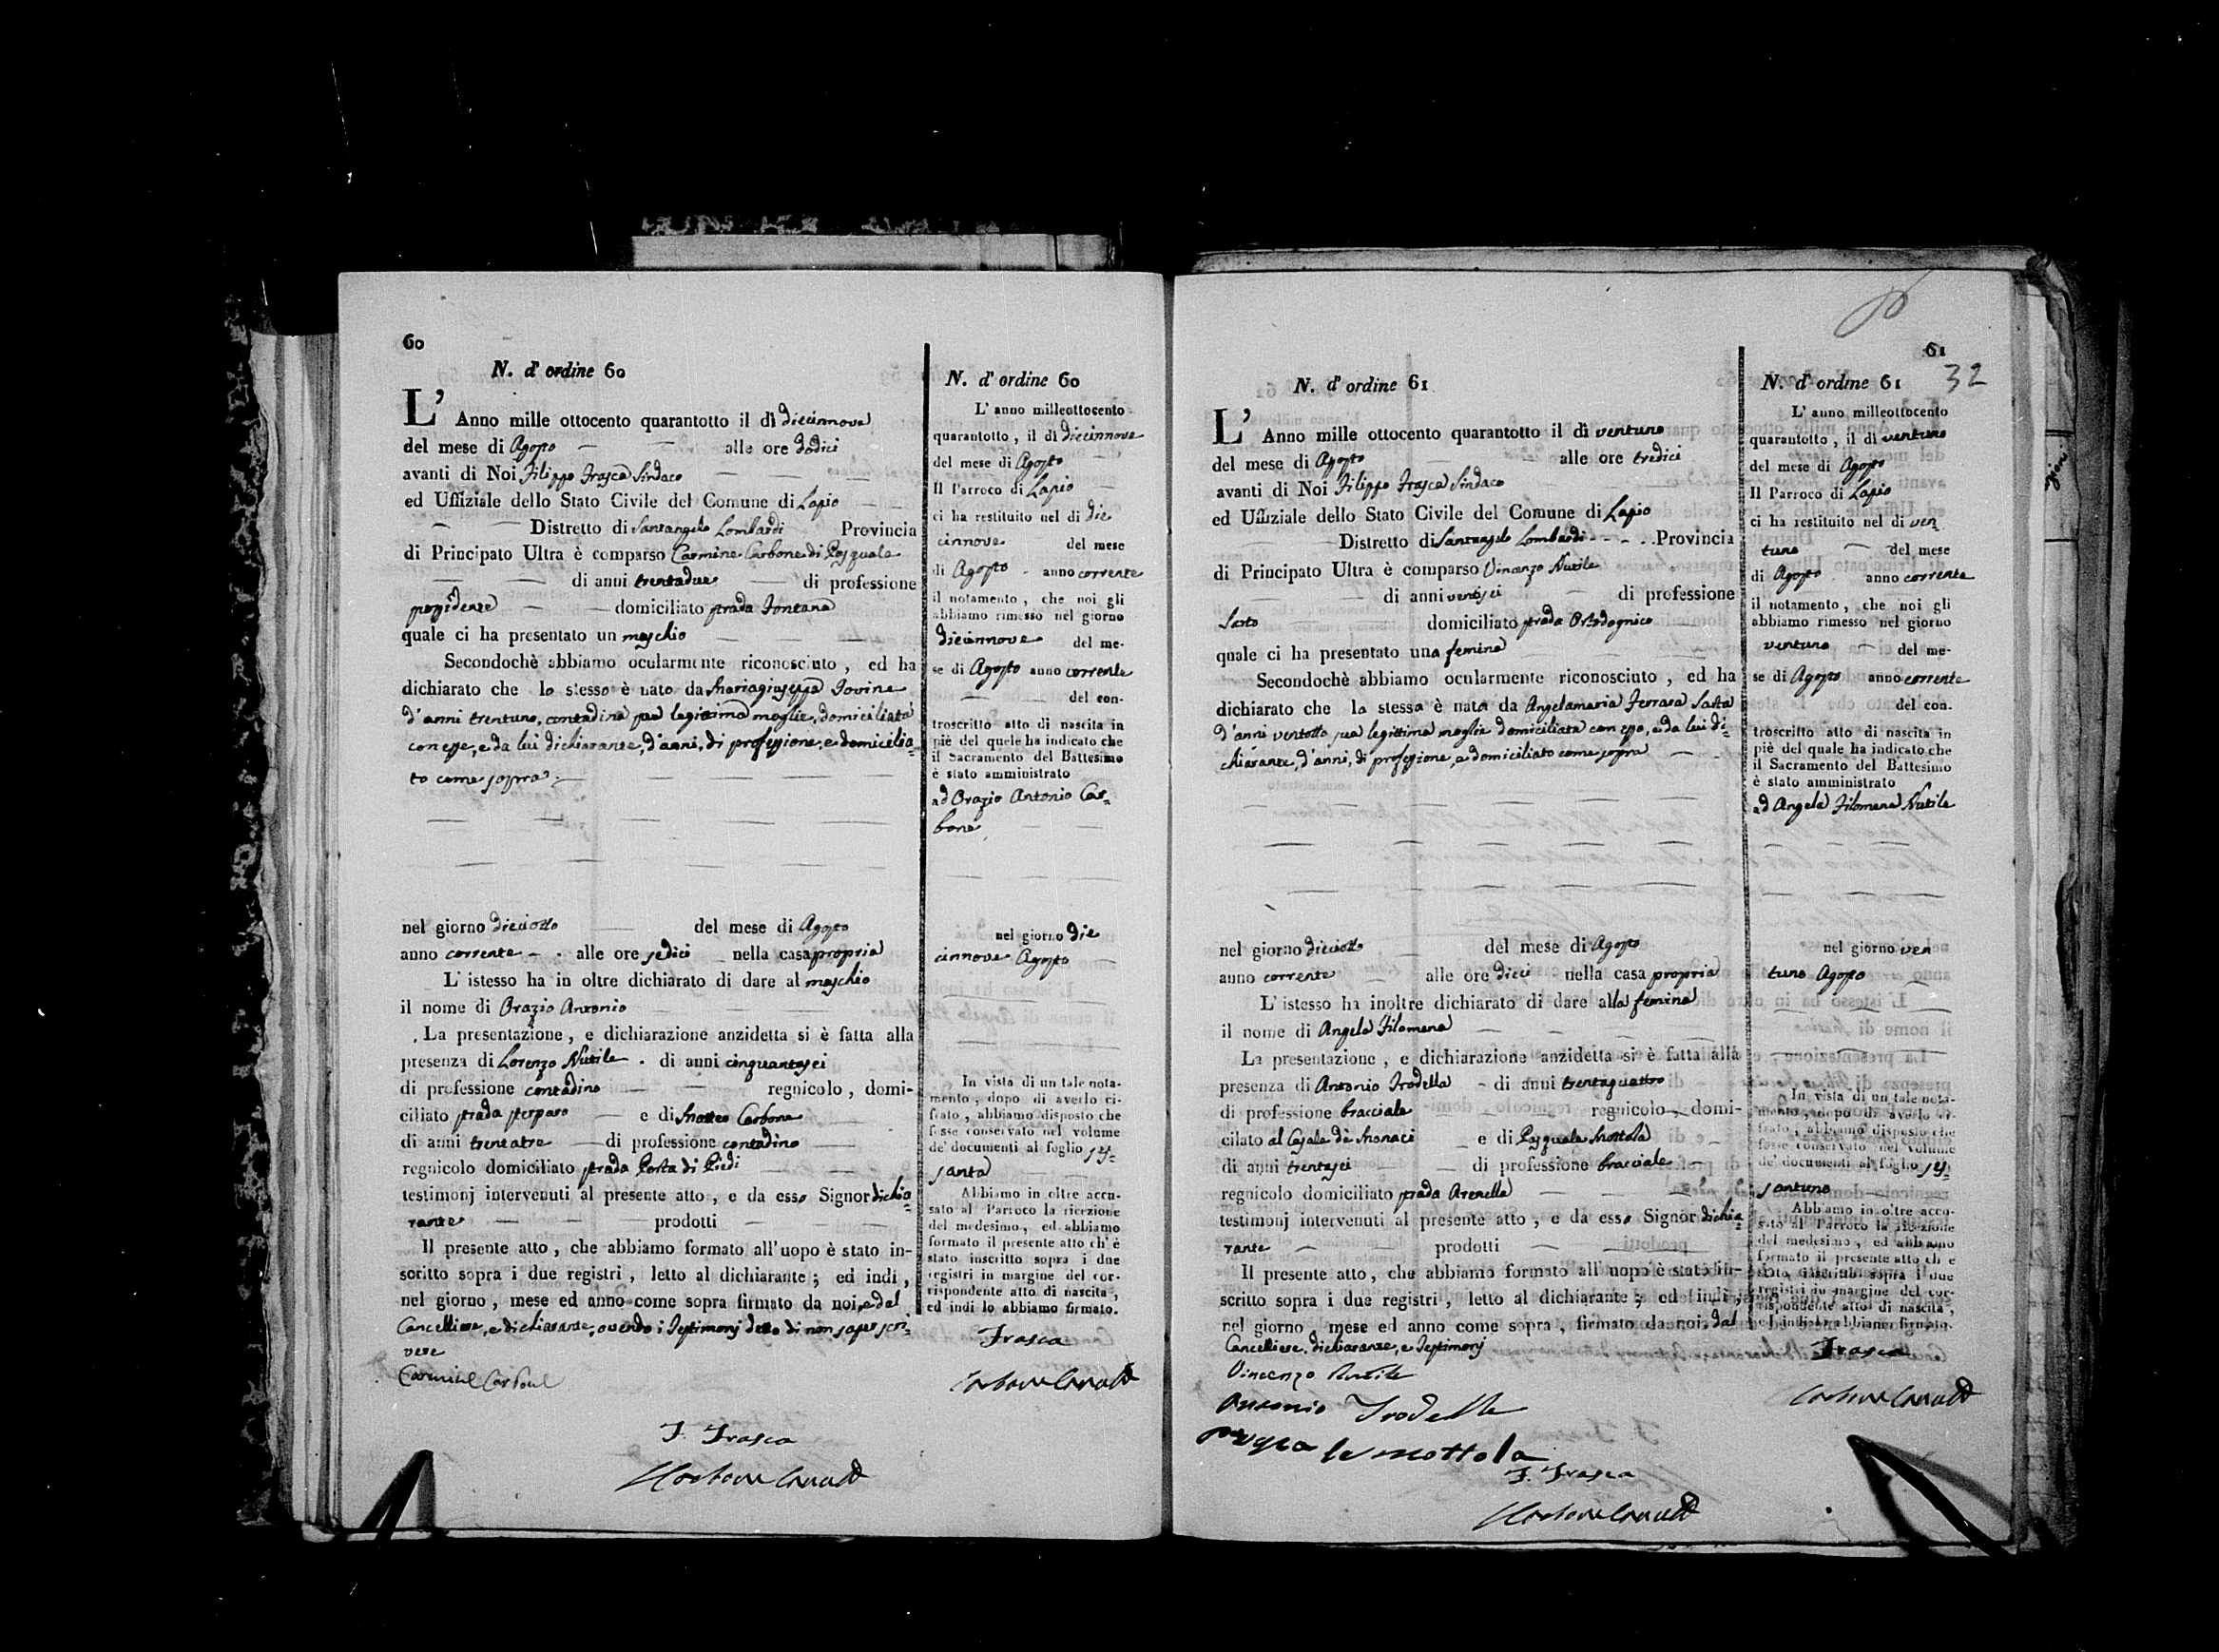 60
N. d' ordine 60
L' Anno mille ottocento quarantotto il dì diecinnove
del mese di Agosto alle ore dodici
avanti di Noi Filippo Frasca Sindaco
ed Uffiziale dello Stato Civile del Comune di Lapio
Distretto di Santangelo Lombardi Provincia
di Principato Ultra è comparso Carmine Carbone di Pasquale
di anni trentadue di professione
possidente domiciliato strada Fontana
quale ci ha presentato un maschio
Secondochè abbiamo ocularmente riconosciuto, ed ha
dichiarato che lo stesso è nato da Mariagiuseppa Iovine
d'anni trentuno, contadina sua legittima moglie, domiciliata
con esse, e da lui dichiarante, d'anni, di professione, e domicilia=
to come sopra
nel giorno dieciotto del mese di Agosto
anno corrente alle ore sedici nella casa propria
L' istesso ha in oltre dichiarato di dare al maschio
il nome di Orazio Antonio
La presentazione, e dichiarazione anzidetta si è fatta alla
presenza di Lorenzo Nutile di anni cinquantasei
di professione contadino regnicolo, domi-
ciliato strada e di Matteo Carbone
di anni trentatre di professione contadino
regnicolo domiciliato strada Porta di Piedi
testimonj intervenuti al presente atto, e da esso Signor dichia=
rante prodotti
Il presente atto, che abbiamo formato all'uopo è stato in-
scritto sopra i due registri, letto al dichiarante; ed indi,
nel giorno, mese ed anno come sopra firmato da noi, e dal
Cancelliere, e dichiarante, avendo i Testimonj detto di non saper scri=
vere
Carmine Carbone
F. Frasca
Carbone
N. d' ordine 60
L' anno milleottocento
quarantotto, il dì diecinnove
del mese di Agosto
Il Parroco di Lapio
ci ha restituito nel dì die
cinnove del mese
di Agosto anno corrente
il notamento, che noi gli
abbiamo rimesso nel giorno
diecinnove del me-
se di Agosto anno corrente
del con-
troscritto atto di nascita in
piè del quele ha indicato che
il Sacramento del Battesimo
è stato amministrato
ad Orazio Antonio Car=
bone
nel giorno die
cinnove Agosto
In vista di un tale nota-
mento, dopo di averlo ci-
frato, abbiamo disposto che
fosse conservato nel volume
de' documenti al foglio ses=
santa
Abbiamo in oltre accu-
sato al Parroco la ricezione
del medesimo, ed abbiamo
formato il presente atto ch'è
stato inscritto sopra i due
registri in margine del cor-
rispondente atto di nascita,
ed indi lo abbiamo firmato.
Frasca
Carbone
61
32
N. d' ordine 61
L' Anno mille ottocento quarantotto il dì ventuno
del mese di Agosto alle ore tredici
avanti di Noi Filippo Frasca Sindaco
ed Uffiziale dello Stato Civile del Comune di Lapio
Distretto di Santangelo Lombardi Provincia
di Principato Ultra è comparso Vincenzo Nutile
di anni ventisei di professione
Sarto domiciliato strada
quale ci ha presentato una femina
Secondochè abbiamo ocularmente riconosciuto, ed ha
dichiarato che la stessa è nata da Angelamaria Ferrara Sarta
d'anni ventotto sua legittima moglie domiciliata con esso, e da lui di=
chiarante, d'anni, di professione, e domiciliato come sopra
nel giorno dieciotto del mese di Agosto
anno corrente alle ore dieci nella casa propria
L' istesso ha inoltre dichiarato di dare alla femina
il nome di Angela Filomena
La presentazione, e dichiarazione anzidetta si è fatta alla
presenza di Antonio Trodella di anni trentaquattro
di professione bracciale regnicolo, domi-
cilato al Casale de Monaci e di Pasquale Mottola
di anni trentasei di professione bracciale
regnicolo domiciliato strada Arenella
testimonj intervenuti al presente atto, e da esso Signor dichia=
rante prodotti
Il presente atto, che abbiamo formato all'uopo è stato in-
scritto sopra i due registri, letto al dichiarante; ed indi,
nel giorno mese ed anno come sopra, firmato da noi, dal
Cancelliere, dichiarante, e Testimonj
Vincenzo Nutile
Antonio Trodella
Pasquale Mottola
F. Frasca
Carbone
N. d' ordine 61
L' anno milleottocento
quarantotto, il dì ventuno
del mese di Agosto
Il Parroco di Lapio
ci ha restituito nel dì ven
tuno del mese
di Agosto anno corrente
il notamento, che noi gli
abbiamo rimesso nel giorno
ventuno del me-
se di Agosto anno corrente
del con-
troscritto atto di nascita in
piè del quale ha indicato che
il Sacramento del Battesimo
è stato amministrato
ad Angela Filomena Nutile
nel giorno ven
tuno Agosto
In vista di un tale nota-
mento, dopo di averlo ci-
frato, abbiamo disposto che
fosse conservato nel volume
de' documenti al foglio ses=
santuno
Abbiamo in oltre accu-
sato al Parroco la ricezione
del medesimo, ed abbiamo
formato il presente atto ch'è
stato inscritto sopra i due
registri in margine del cor-
rispondente atto di nascita,
ed indi lo abbiamo firmato.
Frasca
Carbone